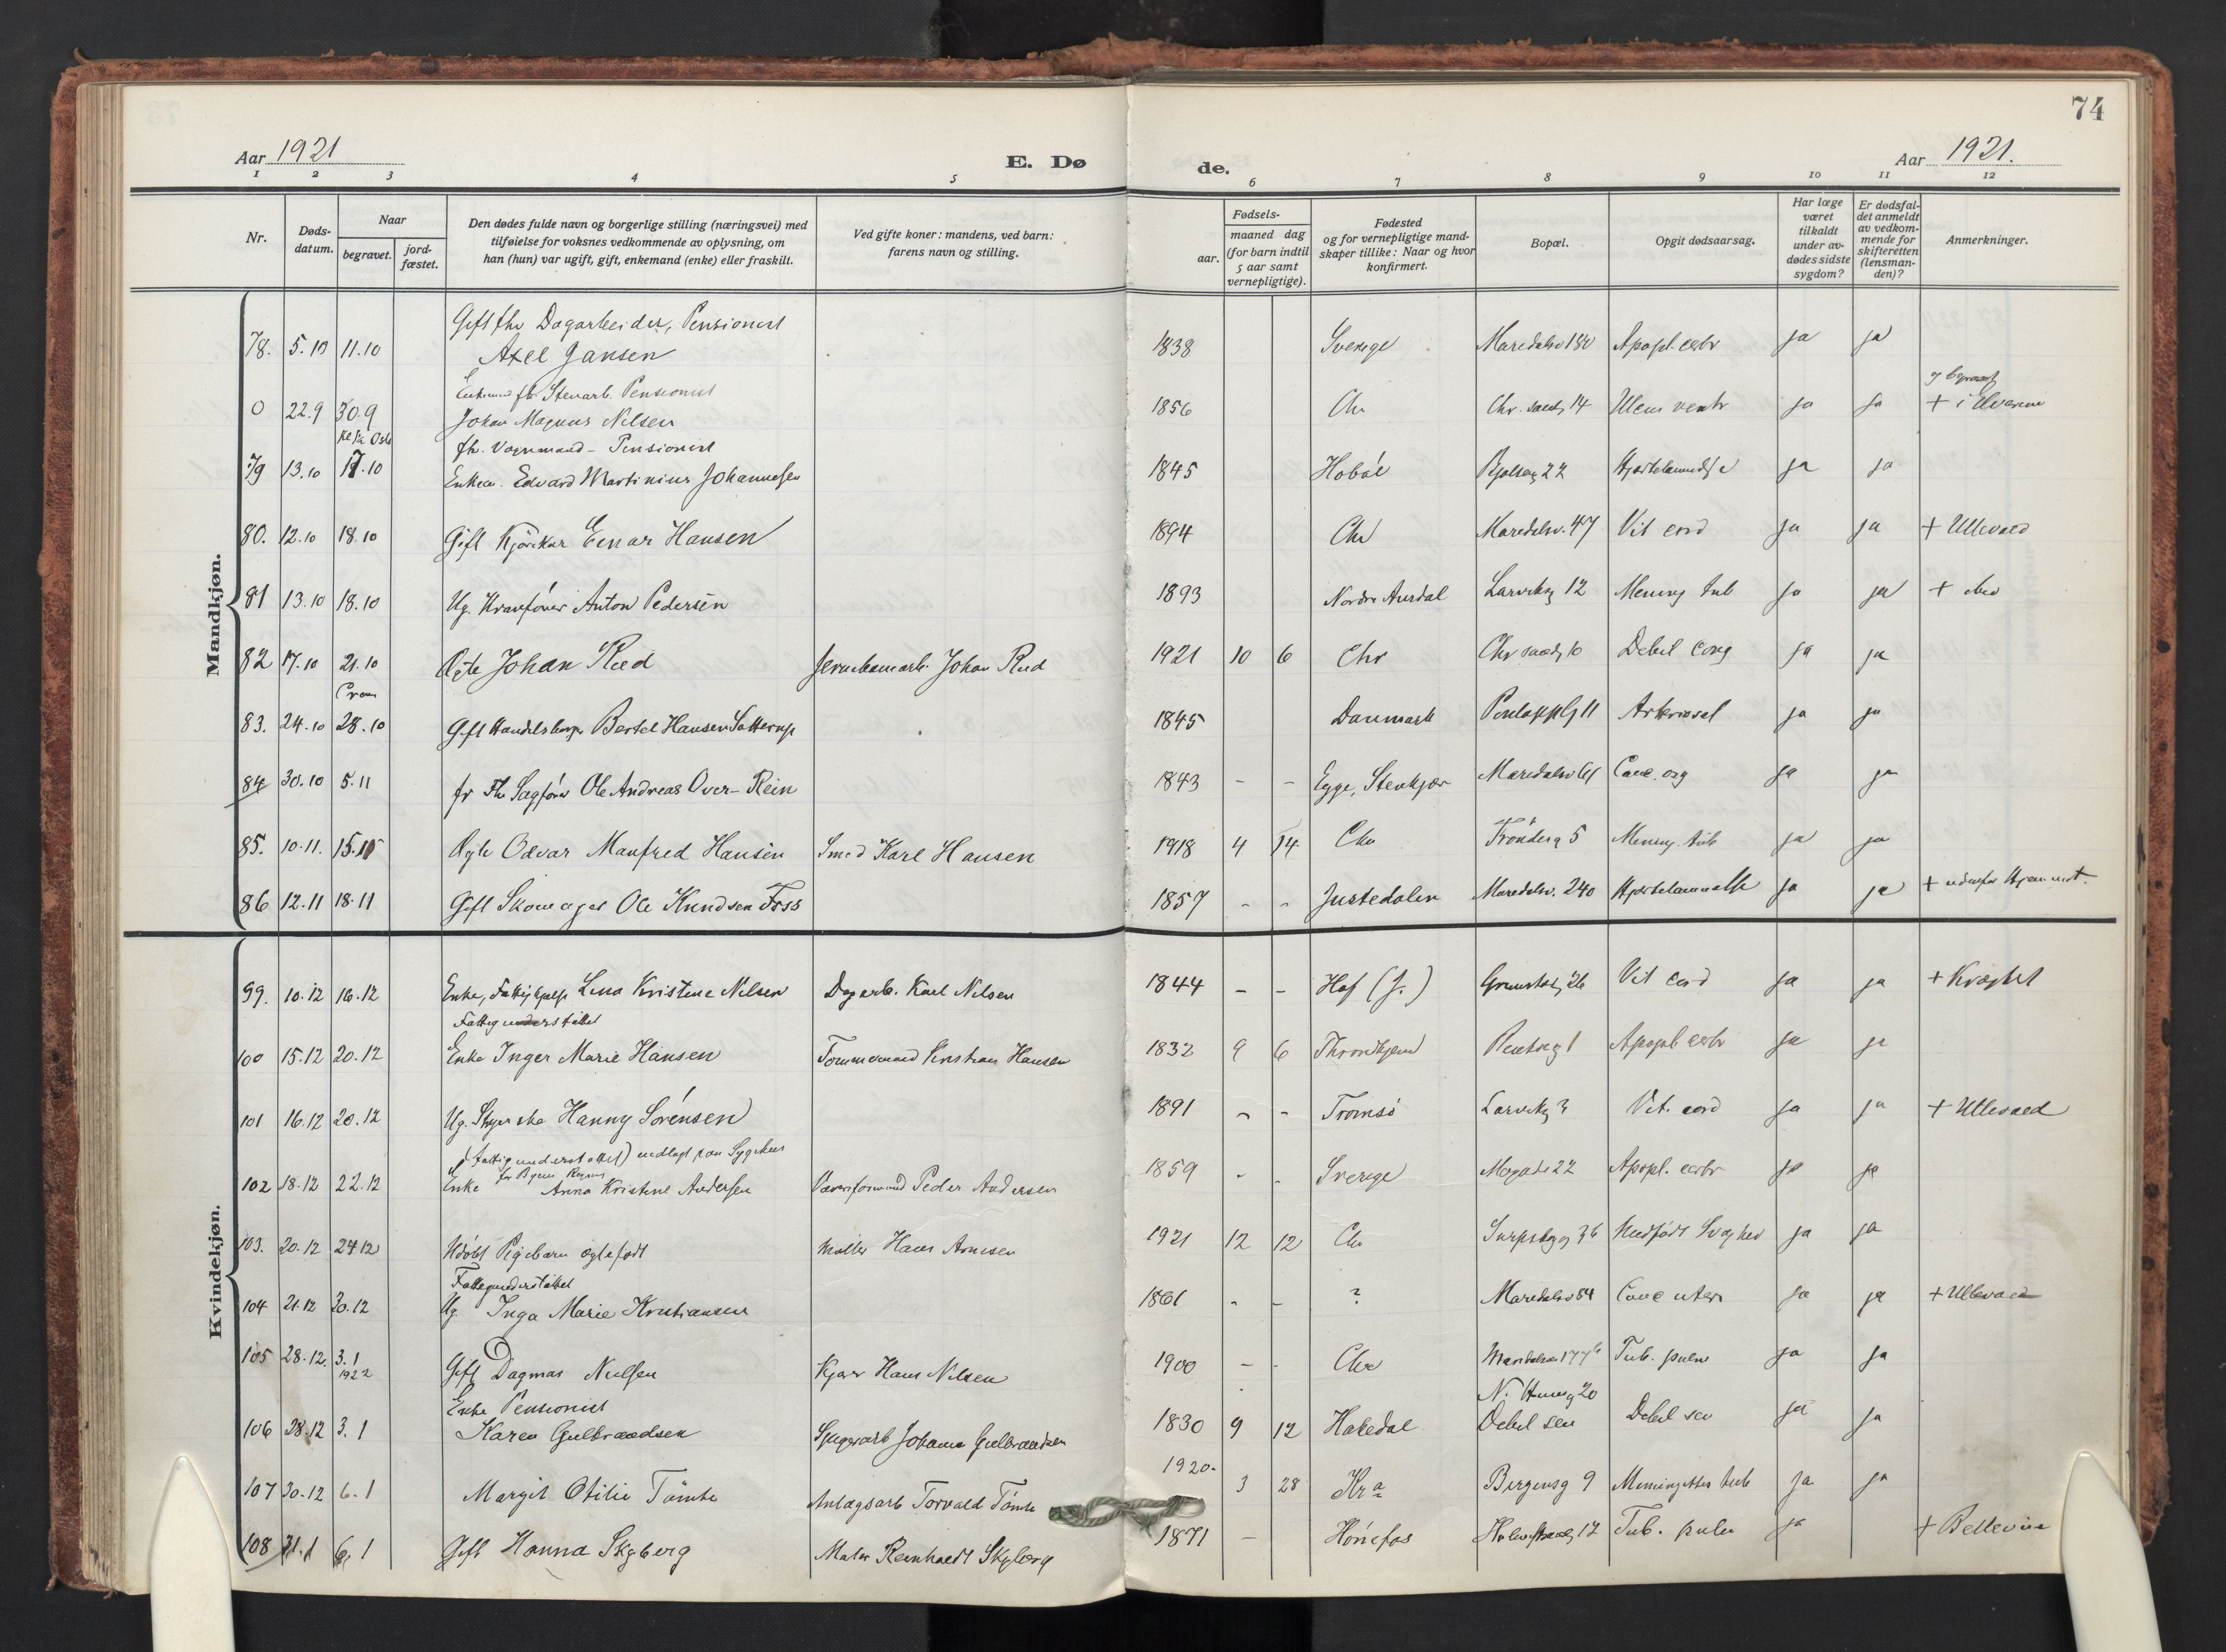 74
Aar 1921
E. Dø
de.
Aar 1921.
1 2 3 4 5 6 7 8 9 10 11 12
Nr.
Døds-
datum.
Naar
begravet.
jord-
fæstet.
Den dødes fulde navn og borgerlige stilling (næringsvei) med
tilføielse for voksnes vedkommende av oplysning, om
han (hun) var ugift, gift, enkemand (enke) eller fraskilt.
Ved gifte koner: mandens, ved barn:
farens navn og stilling.
Fødsels-
aar.
maaned dag
(for barn indtil
5 aar samt
vernepligtige).
Fødested
og for vernepligtige mand-
skaper tillike: Naar og hvor
konfirmert.
Bopæl.
Opgit dødsaarsag.
Har læge
været
tilkaldt
under av-
dødes sidste
sygdom?
Er dødsfal-
det anmeldt
av vedkom-
mende for
skifteretten
(lensman-
den)?
Anmerkninger.
Mandkjøn.
Gift fhv Dagarbeider, Pensionist
78. 5.10 11.10 Axel Jansen 1838 Sverige Maridalsv 180 Apopl. cerbr ja ja
Enkemd fhv Stenarb. Pensionist
0 22.9 30.9 Johan Magnus Nilsen 1856 Chr 14 Ulcus ventr ja ja +
fh. Vognmand - Pensionist
79 13.10 17.10 Enkem. Edvard Martinius Johannessen 1845 Hobøl 22 ja ja
80. 12.10 18.10 Gift Kjørekar Einar Hansen 1894 Chr Maridalsv. 47 Vit cord ja ja + Ullevaal
81 13.10 18.10 Ug. Kranfører Anton Pedersen 1893 Nordre Aurdal Larvikg 12 Mening tub ja ja +
82 17.10 21.10 Ægte Johan Rud Jernbanearb. Johan Rud 1921 10 6 Chr Chr sandg 10 Debil cong ja ja
Crem
83. 24.10 28.10 Gift Handelsborger Bertel Hansen 1845 Danmark 11 ja ja
84 30.10 5.11 fr Fhv Sagfører Ole Andreas Over-Rein 1843 - - Egge, Stenkjær Maridalsv Canc. ja ja
85. 10.11. 15.11 Ægte Odvar Manfred Hansen Smed Karl Hansen 1918 4 14 Chr Trønderg 5 Mening. tub ja ja
86 12.11 18.11 Gift Skomager Ole Knudsen Foss 1857 - - Justedalen Maridalsv. 240 Hjertelammelse ja ja + udenfor Hjemmet.
Kvindekjøn.
99. 10.12 16.12 Enke, Fattighjelp Lina Kristine Nilsen Dagarb. Karl Nilsen 1844 - - Hof (J.) Grimstadg 26 Vit cord ja ja +
Fattigunderstøttet
100 15.12 20.12 Enke Inger Marie Hansen Tømmermand Kristian Hansen 1832 9 6 Throndhjem 1 Apopl cerbr ja ja
101 16.12 20.12 Ug. Syerske Hanny Sørensen 1891 - - Tromsø Larvikg 3 Vit. cord ja ja + Ullevaal
(Fattigunderstøttet) indlagt paa Sygehus
102 18.12 22.12 Enke Anna Kristine Andersen Peder Andersen 1859 - - Sverige 22 Apopl. cerbr ja ja
103. 20.12 24.12 Udøbt Pigebarn ægtefødt Møller Hans Arnesen 1921 12 12 Chr Sarpsborgg 36 Medfødt Svaghed ja ja
Fattigunderstøttet
104 21.12 30.12 Ug. Inga Marie Kristiansen 1861 - - ? Maridalsv 84 Canc uteri ja ja + Ullevaal
105 28.12. 3.1 1922 Gift Dagmar Nielsen Kjører Hans Nilsen 1900 - - Chr Maridalsv 177 Tub. pulm ja ja
Enke Pensionist
106 28.12 3.1 Karen Gulbrandsen Johannes Gulbrandsen 1830 9 12 Hakedal 20 Debil sen Debil sen ja ja
107 30.12 6.1 Margit Otilie Tømte Anlægsarb Torvald Tømte 1920. 3 28 Kra Bergensg 9 Meningitis tub ja ja
108 31.1 6.1 Gift Hanna Skyberg Maler Reinhardt Skyberg 1871 - Hønefos 12 Tub. pulm ja + Bellevue